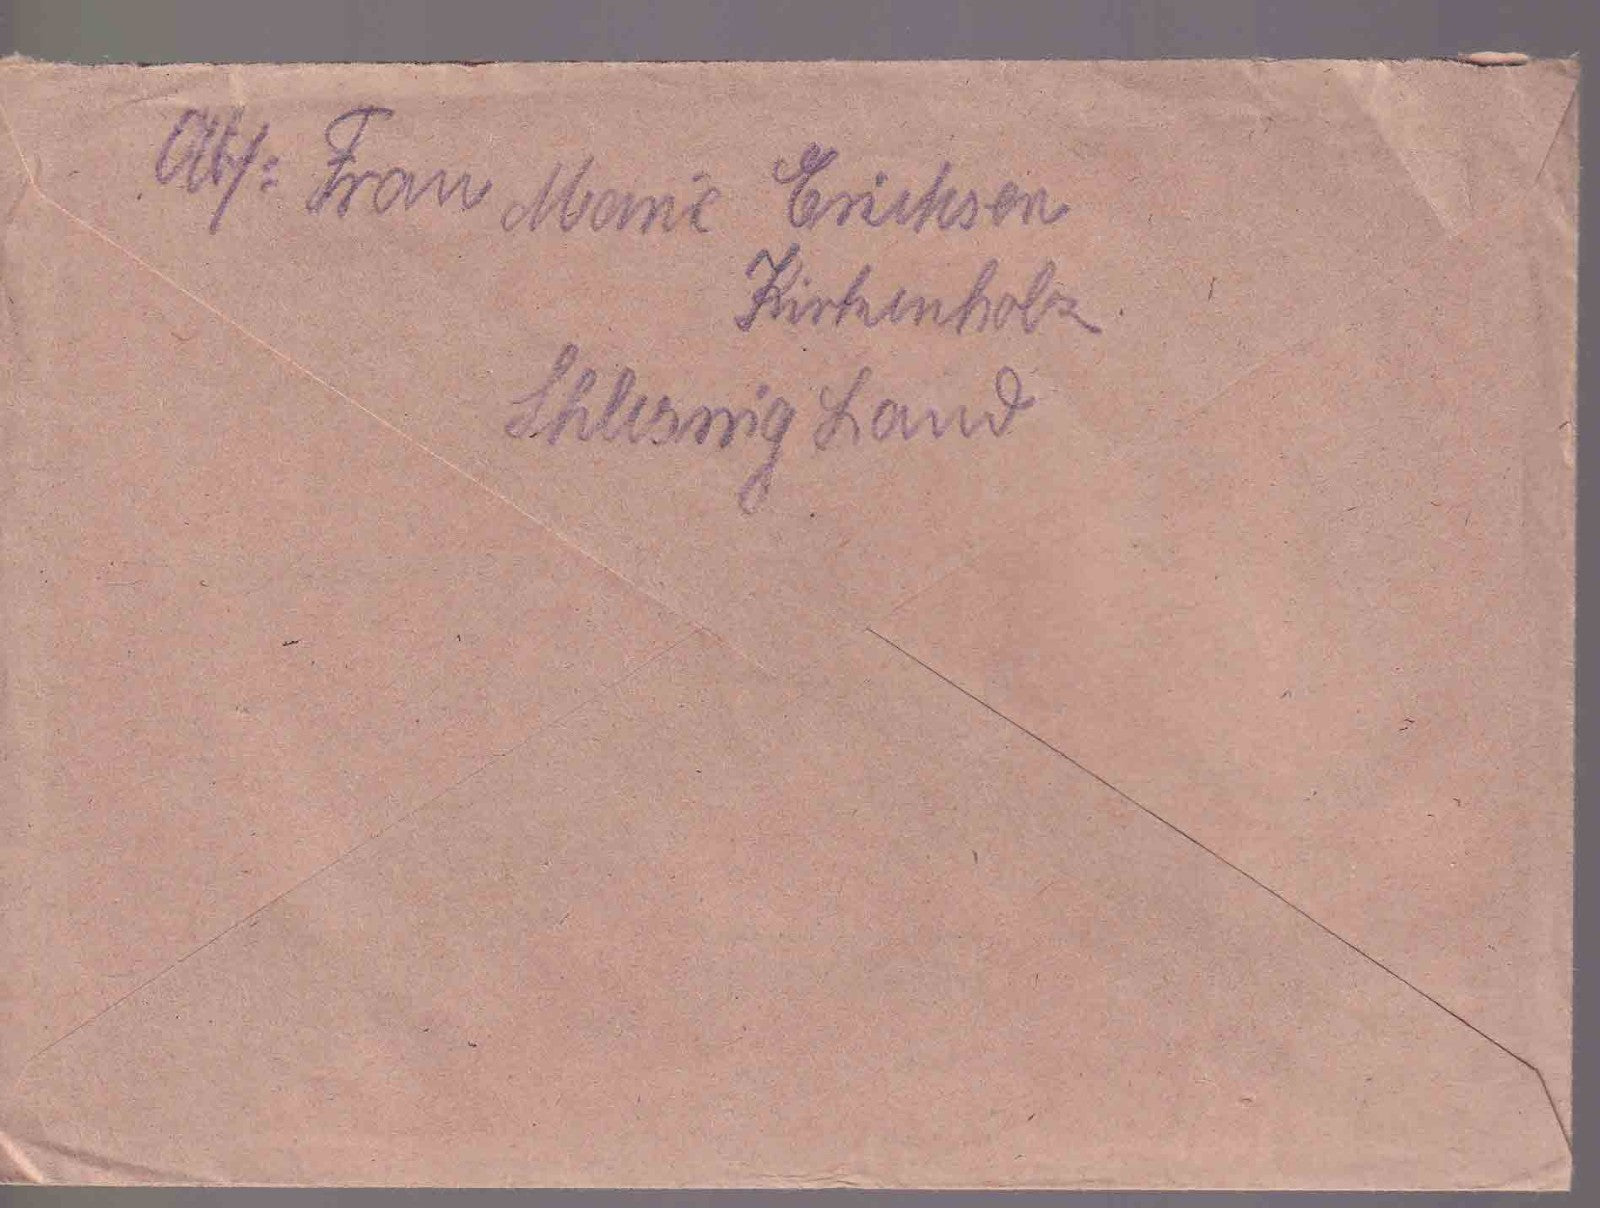 Abs: Frau Marie Ericksen
Kirkenholz
Schleswig Land